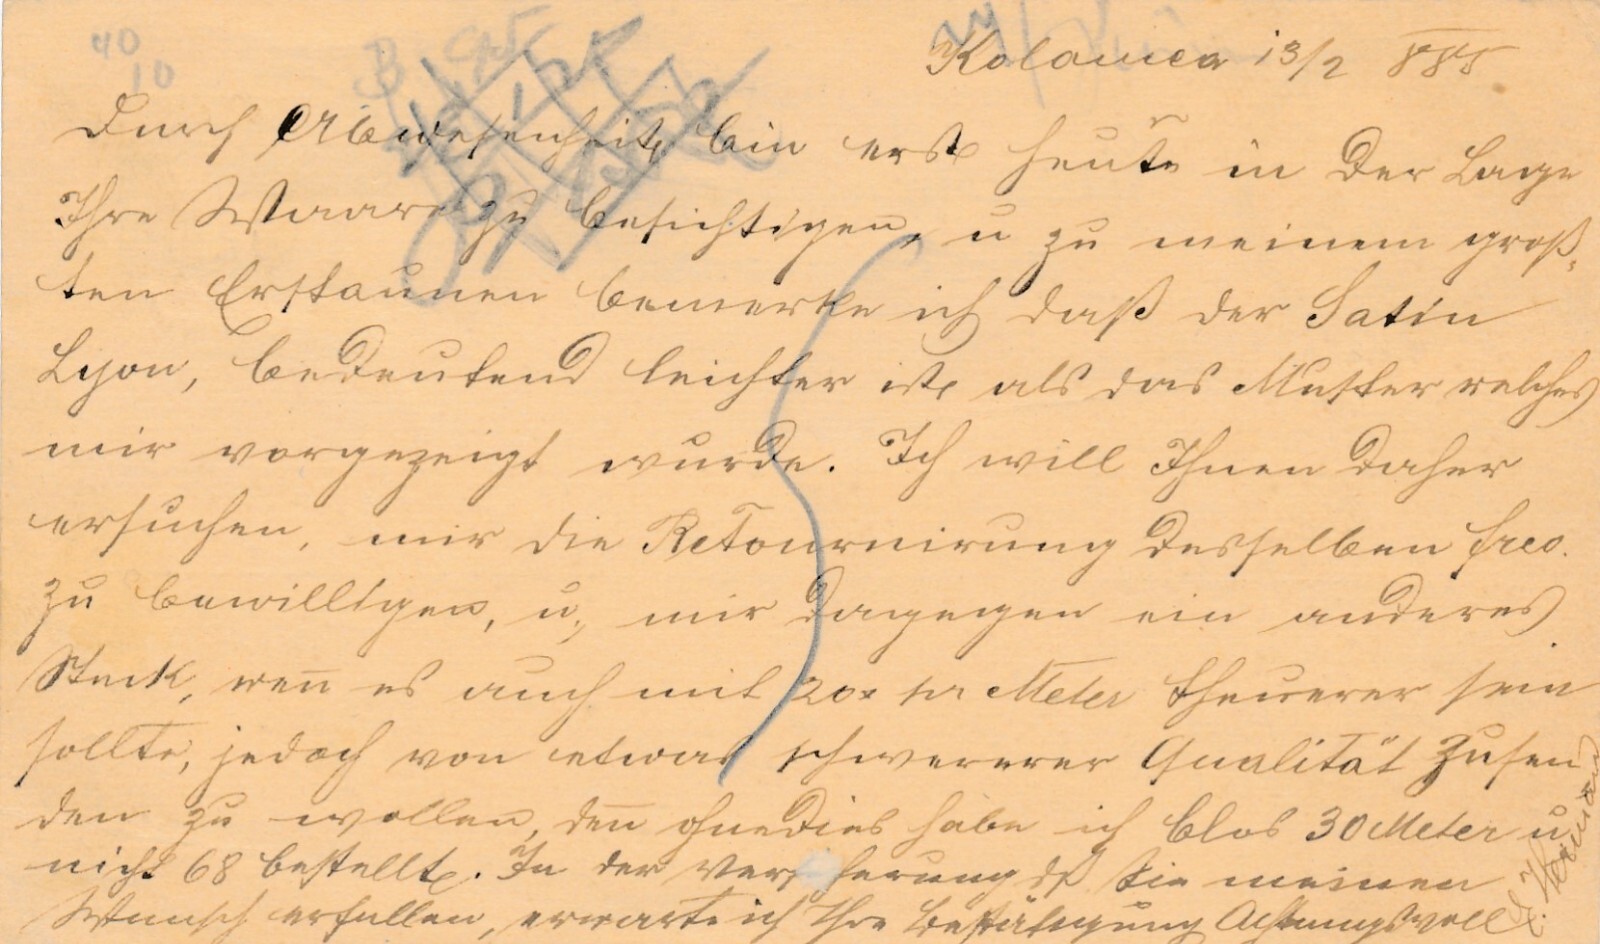 40
10
Kolomea 13/2 885
Durch Abwesenheit bin erst heute in der Lage
Ihre Waare zu besichtigen, u zu meinem groß-
ten Erstaunen bemerke ich daß der Satin
Lyon, bedeutend leichter ist als das Muster welches
mir vorgezeigt wurde. Ich will Ihnen daher
ersuchen, mir die Retournirung desselben frco.
zu bewilligen, u, mir dagegen ein anderes
Stuck, weñ es auch mit 20x pr Meter theuerer sein
sollte, jedoch von etwas schwererer Qualität zusen
den zu wollen, deñ ohnedies habe ich blos 30 Meter u.
nicht 68 bestellt. In der Versicherung dß Sie meinen
Wunsch erfullen, erwarte ich Ihre Bestätigung Achtungsvoll